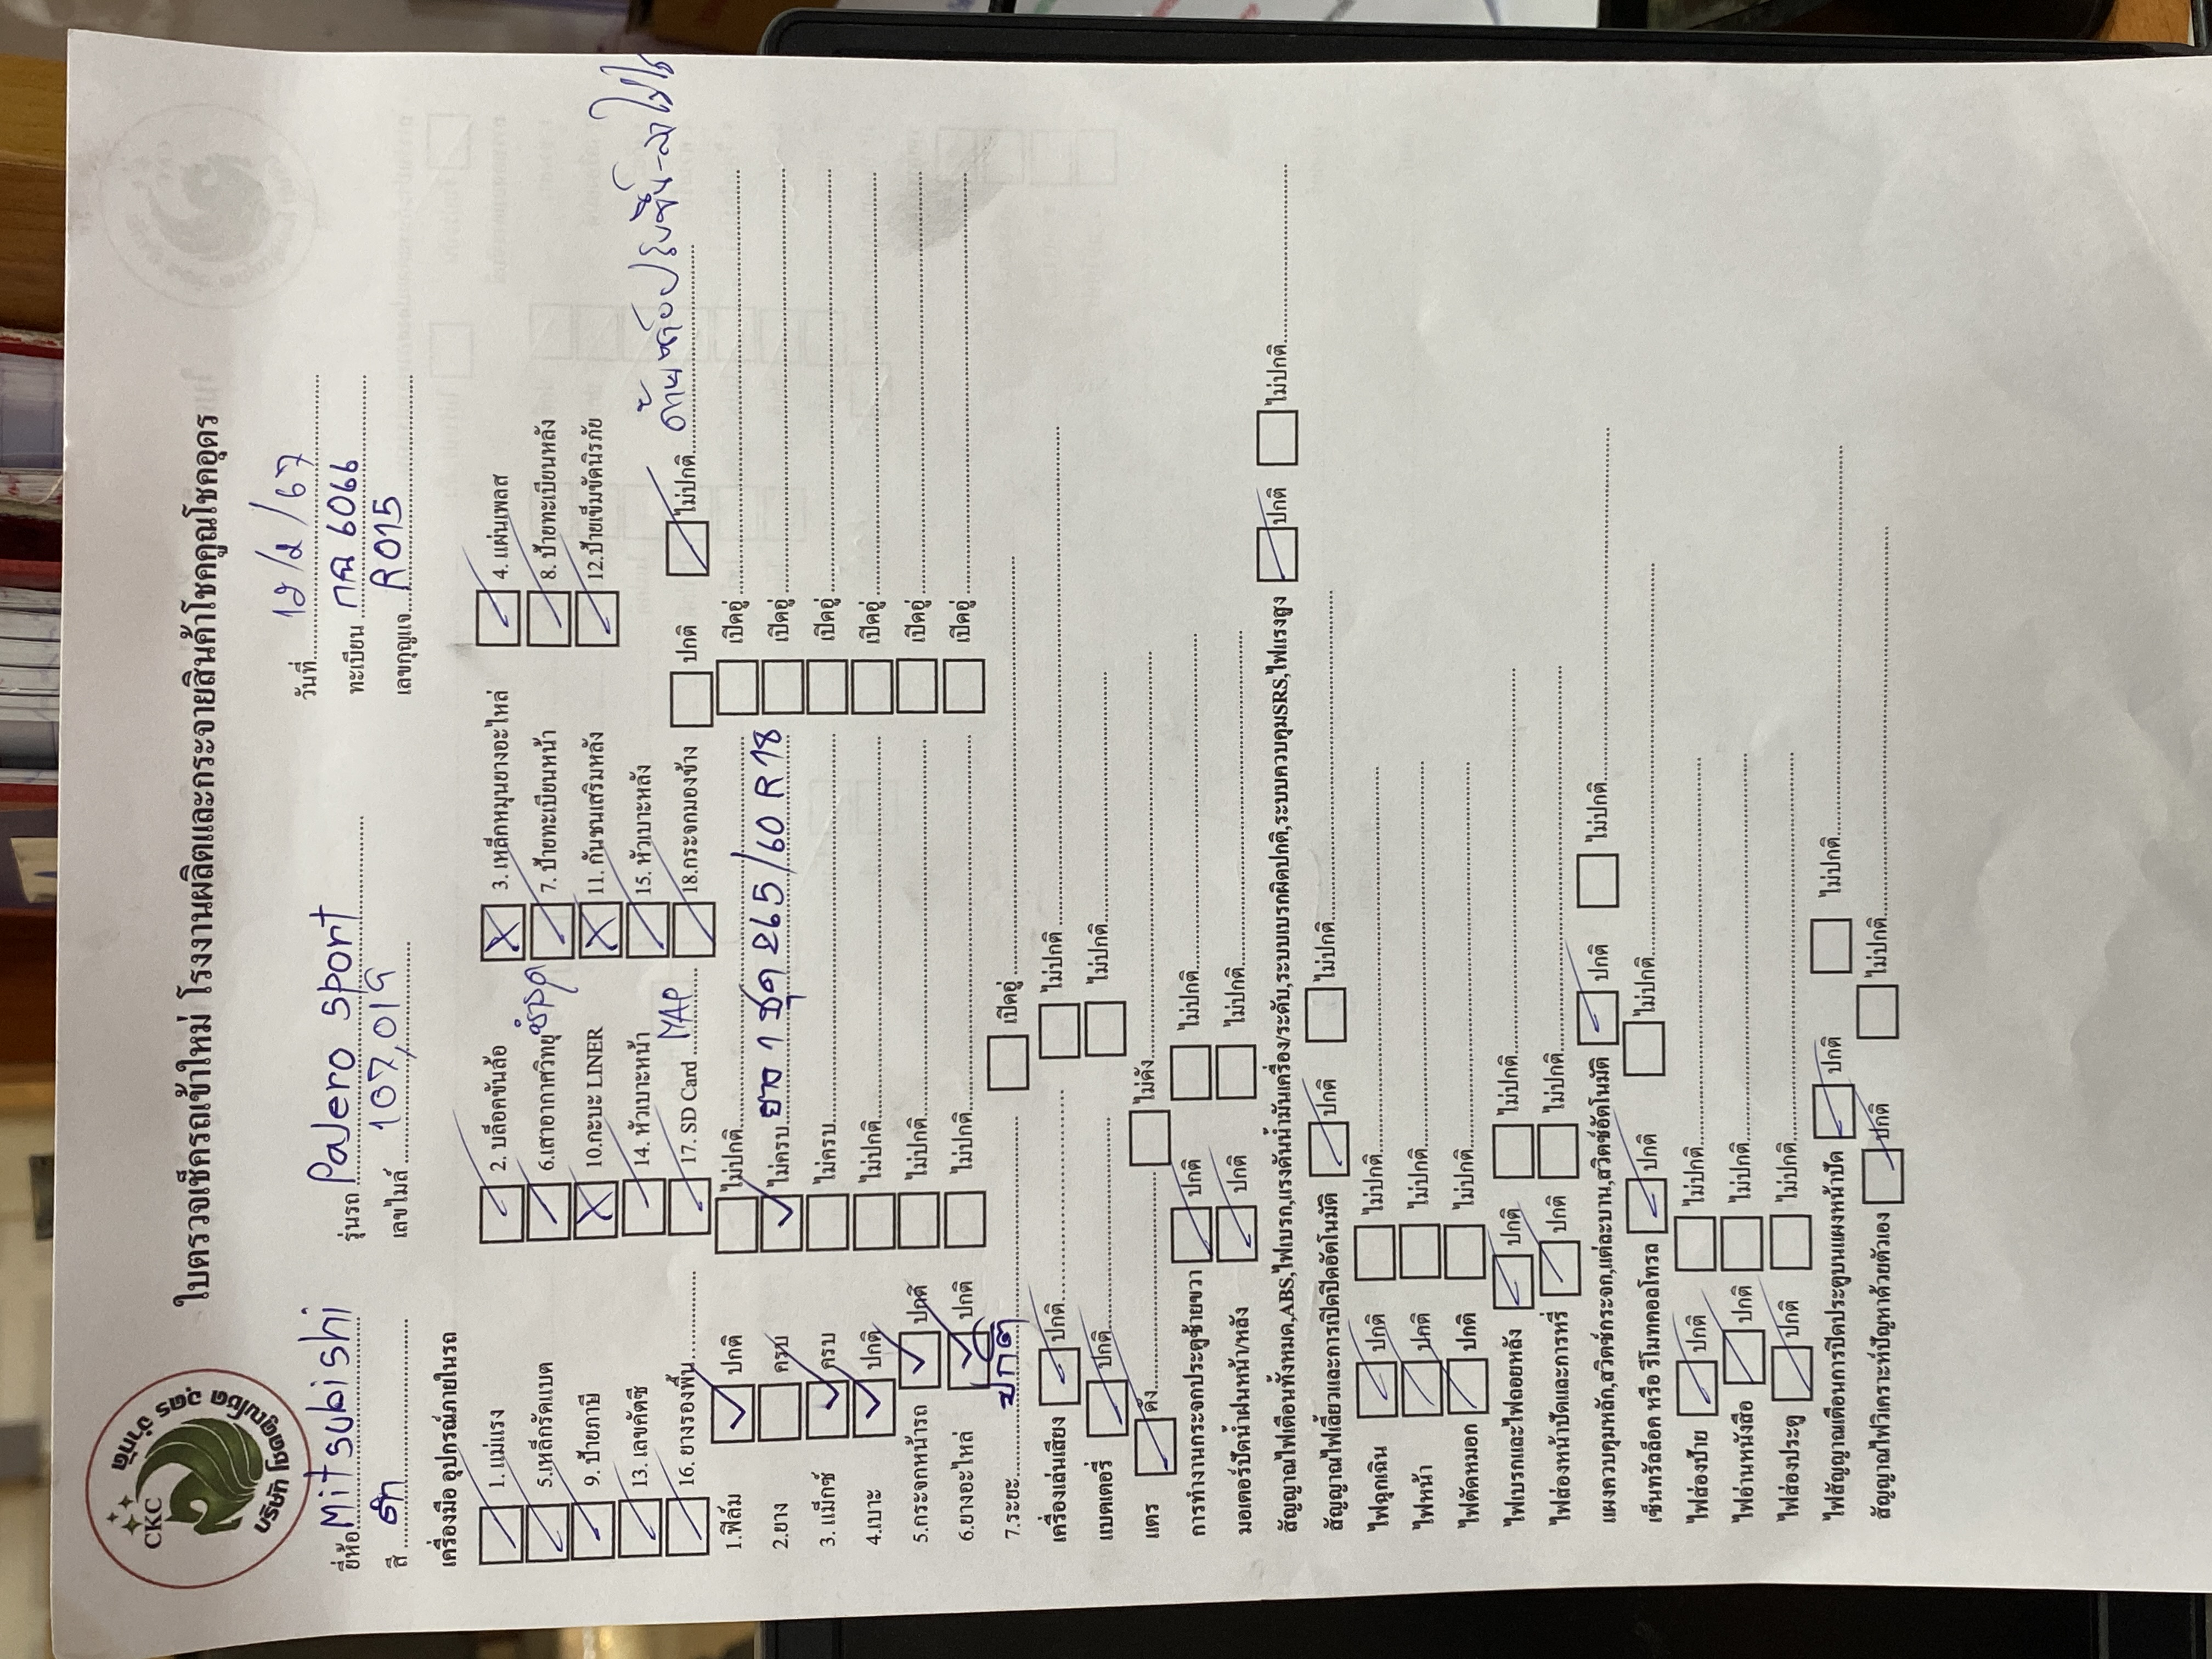 CKC
บริษัท โชคคูณโชค อุดร จำกัด
ใบตรวจเช็ครถเข้าใหม่ โรงงานผลิตและกระจายสินค้าโชคคูณโชคอุดร
วันที่ 12/2/67
ยี่ห้อ Mitsubishi รุ่นรถ Pajero sport ทะเบียน 6066
สี เลขไมล์ 107,019 เลขกุญแจ R015
เครื่องมือ อุปกรณ์ภายในรถ
1. แม่แรง 2. บล็อคขันล้อ 3. เหล็กหมุนยางอะไหล่ 4. แผ่นเพลส
5.เหล็กรัดแบต 6.เสาอากาศวิทยุ 7. ป้ายทะเบียนหน้า 8. ป้ายทะเบียนหลัง
9. ป้ายภาษี 10.กะบะ LINER 11. กันชนเสริมหลัง 12.ป้ายเข็มขัดนิรภัย
13. เลขคัตซี 14. หัวเบาะหน้า 15. หัวเบาะหลัง
16. ยางรองพื้น 17. SD Card MAP 18.กระจกมองข้าง ปกติ ไม่ปกติ
1.ฟิล์ม ปกติ ไม่ปกติ เปิดอู่
2.ยาง ครบ ไม่ครบ ยาง 1 ชุด 265/60 R18 เปิดอู่
3. แม็กซ์ ครบ ไม่ครบ เปิดอู่
4.เบาะ ปกติ ไม่ปกติ เปิดอู่
5.กระจกหน้ารถ ปกติ ไม่ปกติ เปิดอู่
6.ยางอะไหล่ ปกติ ไม่ปกติ เปิดอู่
7.ระยะ ปกติ เปิดอู่
เครื่องเล่นเสียง ปกติ ไม่ปกติ
แบตเตอรี่ ปกติ ไม่ปกติ
แตร ดัง ไม่ดัง
การทำงานกระจกประตูซ้ายขวา ปกติ ไม่ปกติ
มอเตอร์ปัดน้ำฝนหน้า/หลัง ปกติ ไม่ปกติ
สัญญาณไฟเตือนทั้งหมด,ABS,ไฟเบรก,แรงดันน้ำมันเครื่อง/ระดับ,ระบบเบรกผิดปกติ,ระบบควบคุมSRS,ไฟแรงสูง ปกติ ไม่ปกติ
สัญญาณไฟเลี้ยวและการเปิดปิดอัตโนมัติ ปกติ ไม่ปกติ
ไฟฉุกเฉิน ปกติ ไม่ปกติ
ไฟหน้า ปกติ ไม่ปกติ
ไฟตัดหมอก ปกติ ไม่ปกติ
ไฟเบรกและไฟถอยหลัง ปกติ ไม่ปกติ
ไฟส่องหน้าปัดและการหรี่ ปกติ ไม่ปกติ
แผงควบคุมหลัก,สวิตช์กระจก,แต่ละบาน,สวิตช์อัตโนมัติ ปกติ ไม่ปกติ
เซ็นทรัลล็อค หรือ รีโมทคอลโทรล ปกติ ไม่ปกติ
ไฟส่องป้าย ปกติ ไม่ปกติ
ไฟอ่านหนังสือ ปกติ ไม่ปกติ
ไฟส่องประตู ปกติ ไม่ปกติ
ไฟสัญญาณเตือนการปิดประตูบนแผงหน้าปัด ปกติ ไม่ปกติ
สัญญาณไฟวิเคราะห์ปัญหาด้วยตัวเอง ปกติ ไม่ปกติ